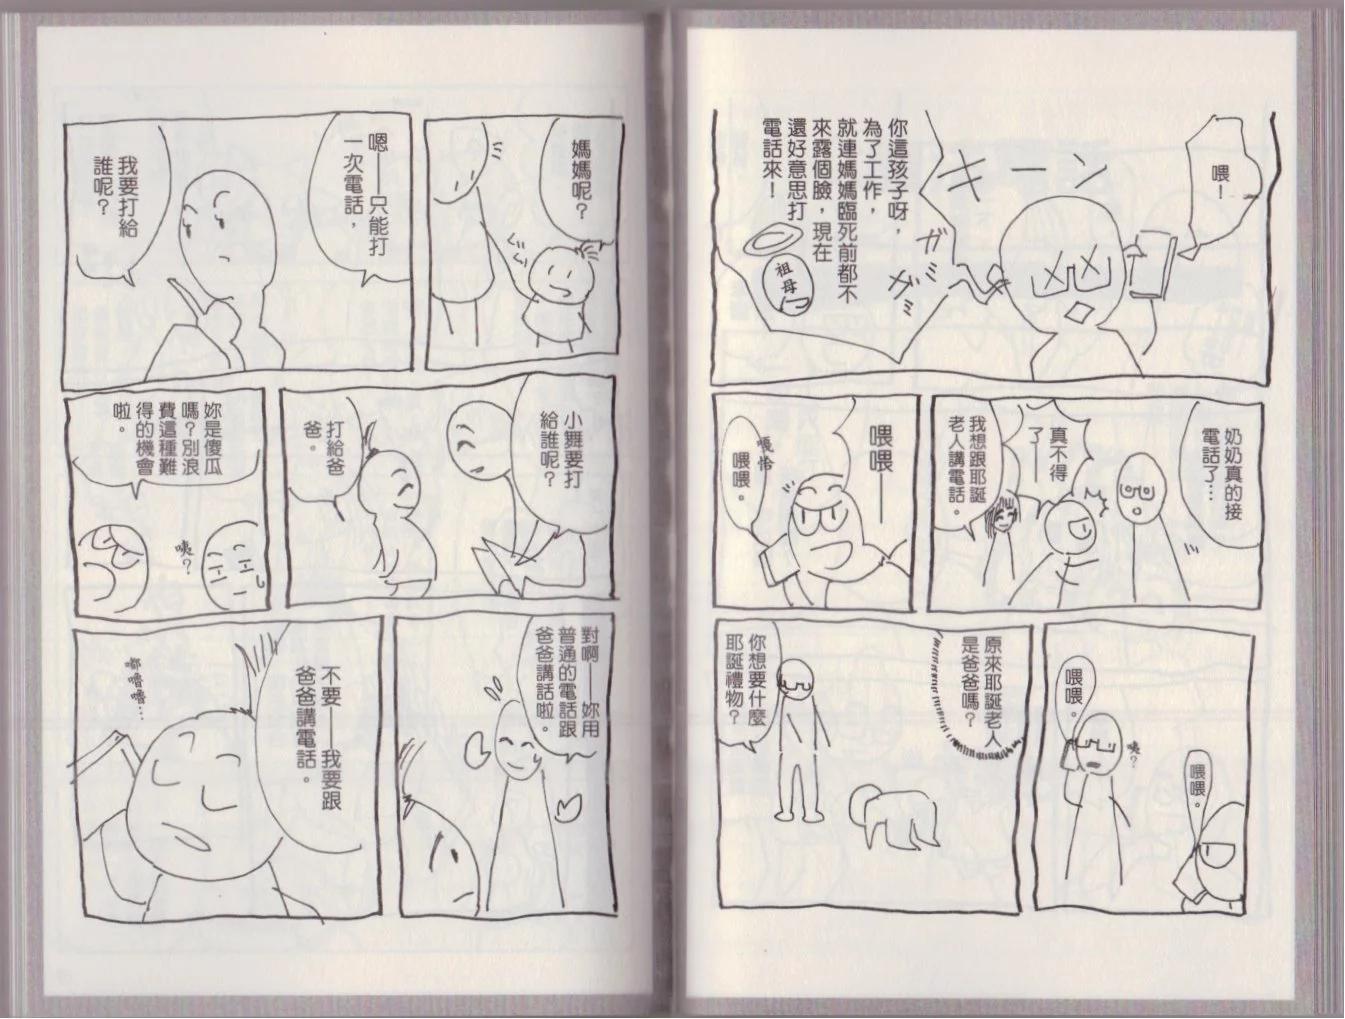 喂！
キーン
ガガガミ
你這孩子呀，
為了工作，
就連媽媽臨死前都不
來露個臉，現在
還好意思打
電話來！
祖母
奶奶真的接
電話了…
真不得
了——
我想跟耶誕
老人講電話。
喂喂——
嘎恰
喂喂。
喂喂。
咦？
喂喂。
原來耶誕老人
是爸爸嗎？
你想要什麼
耶誕禮物？
媽媽呢？
嗯——只能打
一次電話，
我要打給
誰呢？
小舞要打
給誰呢？
打給爸
爸。
妳是傻瓜
嗎？別浪
費這種難
得的機會
啦。
咦？
對啊——妳用
普通的電話跟
爸爸講話啦。
不要——我要跟
爸爸講電話。
嘟嚕嚕…